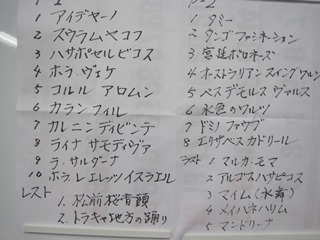 1 アイデヤーノ
2 ズウラム ヤコフ
3 ハサポセルビコス
4 ホラ.ヴェケ
5 コルル アロムン
6 カランフィル
7 カレニン ディビンテ
8 ライナ サモディヴァ
9 ラ.サルダーナ
10 ホラ レエレッツイスラエル
レスト
1. 松前桜音頭
2. トラキヤ地方の踊り
1 タミー
2 タンゴファシネーション
3 宮廷ポロネーズ
4 オーストラリアンスイングワルツ
5 ベスデモルス ヴァルス
6 水色のワルツ
7 ドミノ ファイブ
8 エリザベス カドリール
ラスト
1 マルカ.モマ
2 アルゴスハサピコス
3 マイム(水舞)
4 メイハネハリム
5 マンドリーナ